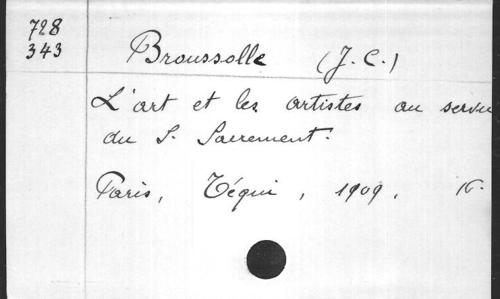 728
343
Broussolle (J. C.)
L'art et les artistes au
du S. Sacrement.
Paris, Téqui, 1909, 16.